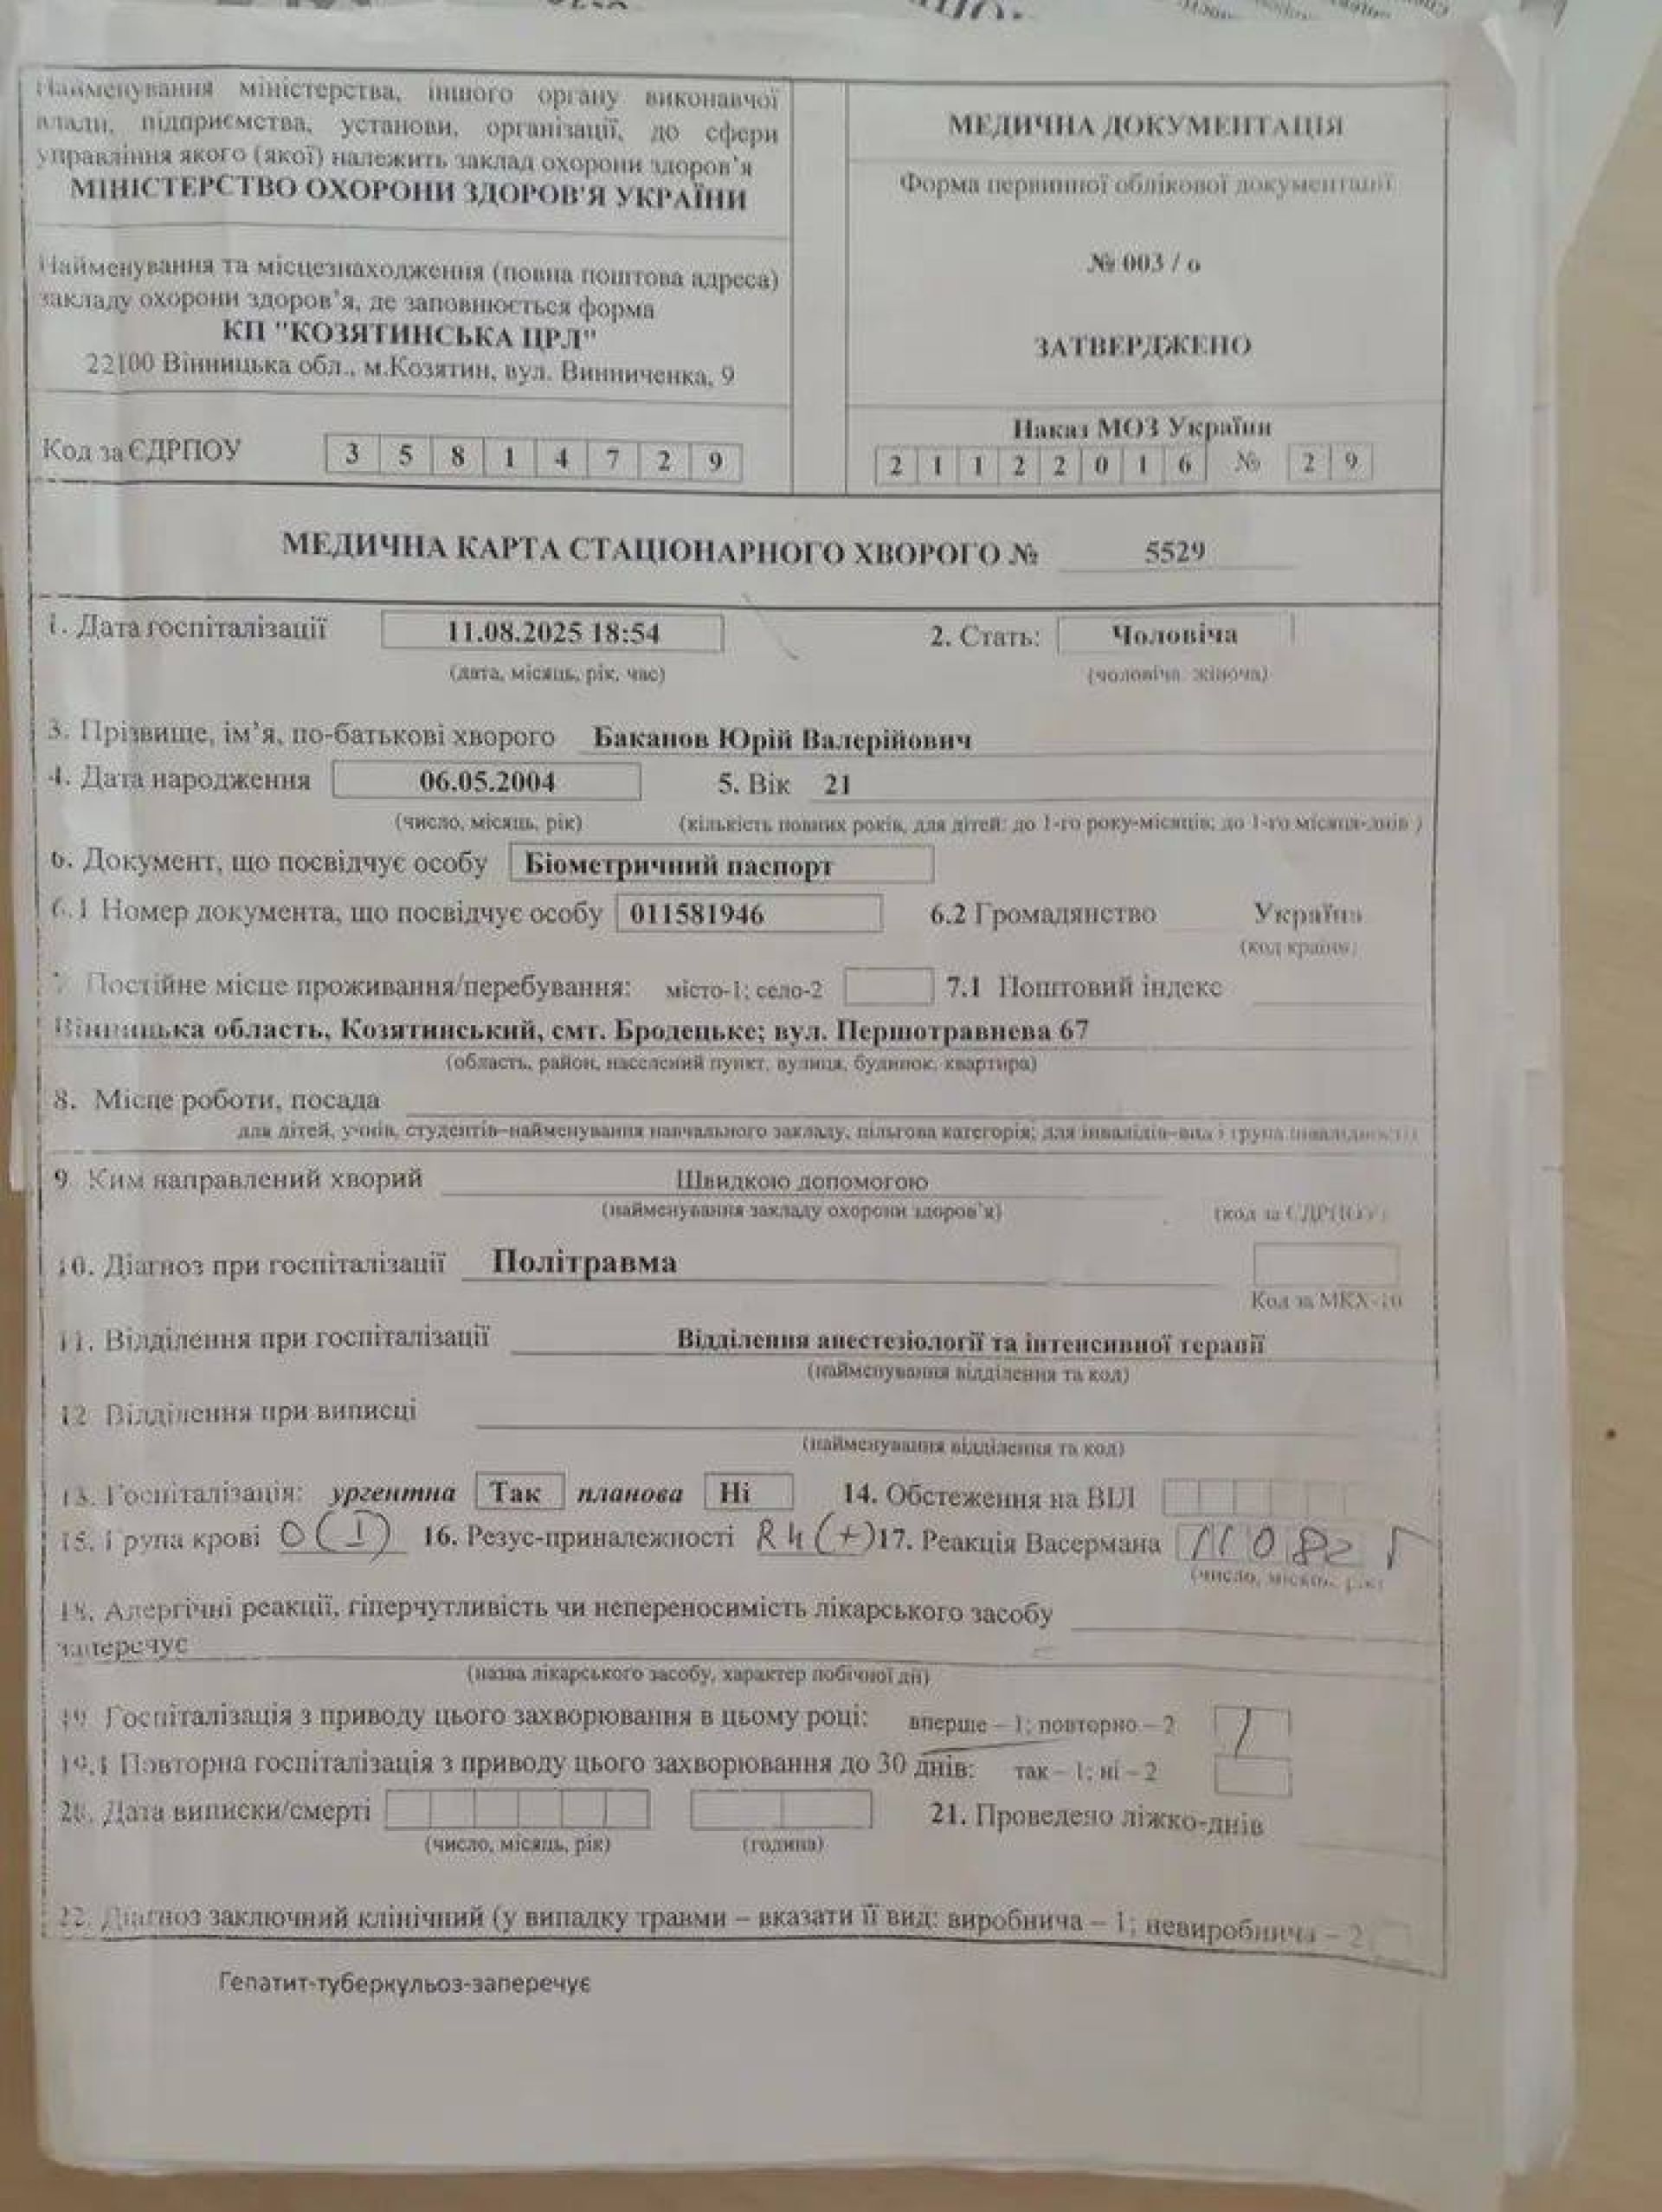 Найменування міністерства, іншого органу виконавчої
влади, підприємства, установи, організації, до сфери
управління якого (якої) належить заклад охорони здоров'я
МІНІСТЕРСТВО ОХОРОНИ ЗДОРОВ'Я УКРАЇНИ
Найменування та місцезнаходження (повна поштова адреса)
закладу охорони здоров'я, де заповнюється форма
КП "КОЗЯТИНСЬКА ЦРЛ"
22100 Вінницька обл., м.Козятин, вул. Винниченка, 9
Код за ЄДРПОУ 3 5 8 1 4 7 2 9
МЕДИЧНА ДОКУМЕНТАЦІЯ
Форма первинної облікової документації
№ 003 / о
ЗАТВЕРДЖЕНО
Наказ МОЗ України
2 1 1 2 2 0 1 6 № 2 9
МЕДИЧНА КАРТА СТАЦІОНАРНОГО ХВОРОГО № 5529
1. Дата госпіталізації 11.08.2025 18:54 2. Стать: Чоловіча
(дата, місяць, рік, час) (чоловіча жіноча)
3. Прізвище, ім'я, по-батькові хворого Баканов Юрій Валерійович
4. Дата народження 06.05.2004 5. Вік 21
(число, місяць, рік) (кількість повних років, для дітей: до 1-го року-місяців; до 1-го місяця-днів )
6. Документ, що посвідчує особу Біометричний паспорт
6.1 Номер документа, що посвідчує особу 011581946 6.2 Громадянство Україна
(код країни)
7. Постійне місце проживання/перебування: місто-1; село-2 7.1 Поштовий індекс
Вінницька область, Козятинський, смт. Бродецьке; вул. Першотравнева 67
(область, район, населений пункт, вулиця, будинок, квартира)
8. Місце роботи, посада
для дітей, учнів, студентів–найменування навчального закладу, пільгова категорія; для інвалідів–вид і група інвалідності
9. Ким направлений хворий Швидкою допомогою
(найменування закладу охорони здоров'я) (код за ЄДРПОУ)
10. Діагноз при госпіталізації Політравма
Код за МКХ-10
11. Відділення при госпіталізації Відділення анестезіології та інтенсивної терапії
(найменування відділення та код)
12 Відділення при виписці
(найменування відділення та код)
13. Госпіталізація: ургентна Так планова Ні 14. Обстеження на ВІЛ
15. Група крові O (I) 16. Резус-приналежності Rh (+) 17. Реакція Васермана
(число, місяць, рік)
18. Алергічні реакції, гіперчутливість чи непереносимість лікарського засобу
заперечує
(назва лікарського засобу, характер побічної дії)
19. Госпіталізація з приводу цього захворювання в цьому році: вперше – 1; повторно – 2 1
19.1 Повторна госпіталізація з приводу цього захворювання до 30 днів: так – 1; ні – 2
20. Дата виписки/смерті 21. Проведено ліжко-днів
(число, місяць, рік) (година)
22. Діагноз заключний клінічний (у випадку травми – вказати її вид: виробнича – 1; невиробнича – 2
Гепатит-туберкульоз-заперечує